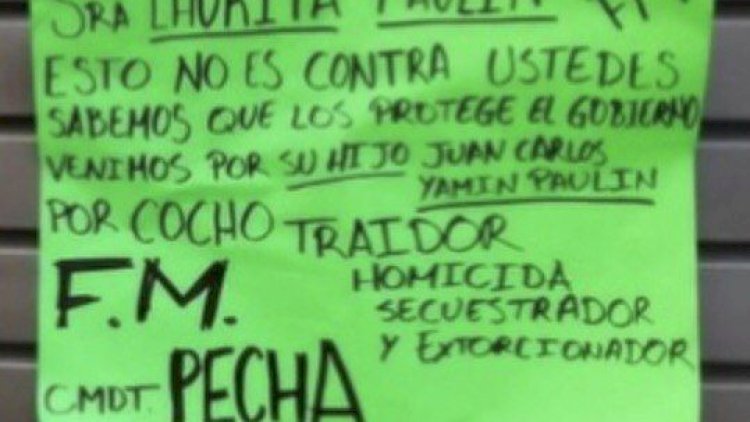 SRA LAURITA PAULIN
ESTO NO ES CONTRA USTEDES
SABEMOS QUE LOS PROTEGE EL GOBIERNO
VENIMOS POR SU HIJO JUAN CARLOS
YAMIN PAULIN
POR COCHO TRAIDOR
HOMICIDA
SECUESTRADOR
Y EXTORCIONADOR
F.M.
CMDT. PECHA